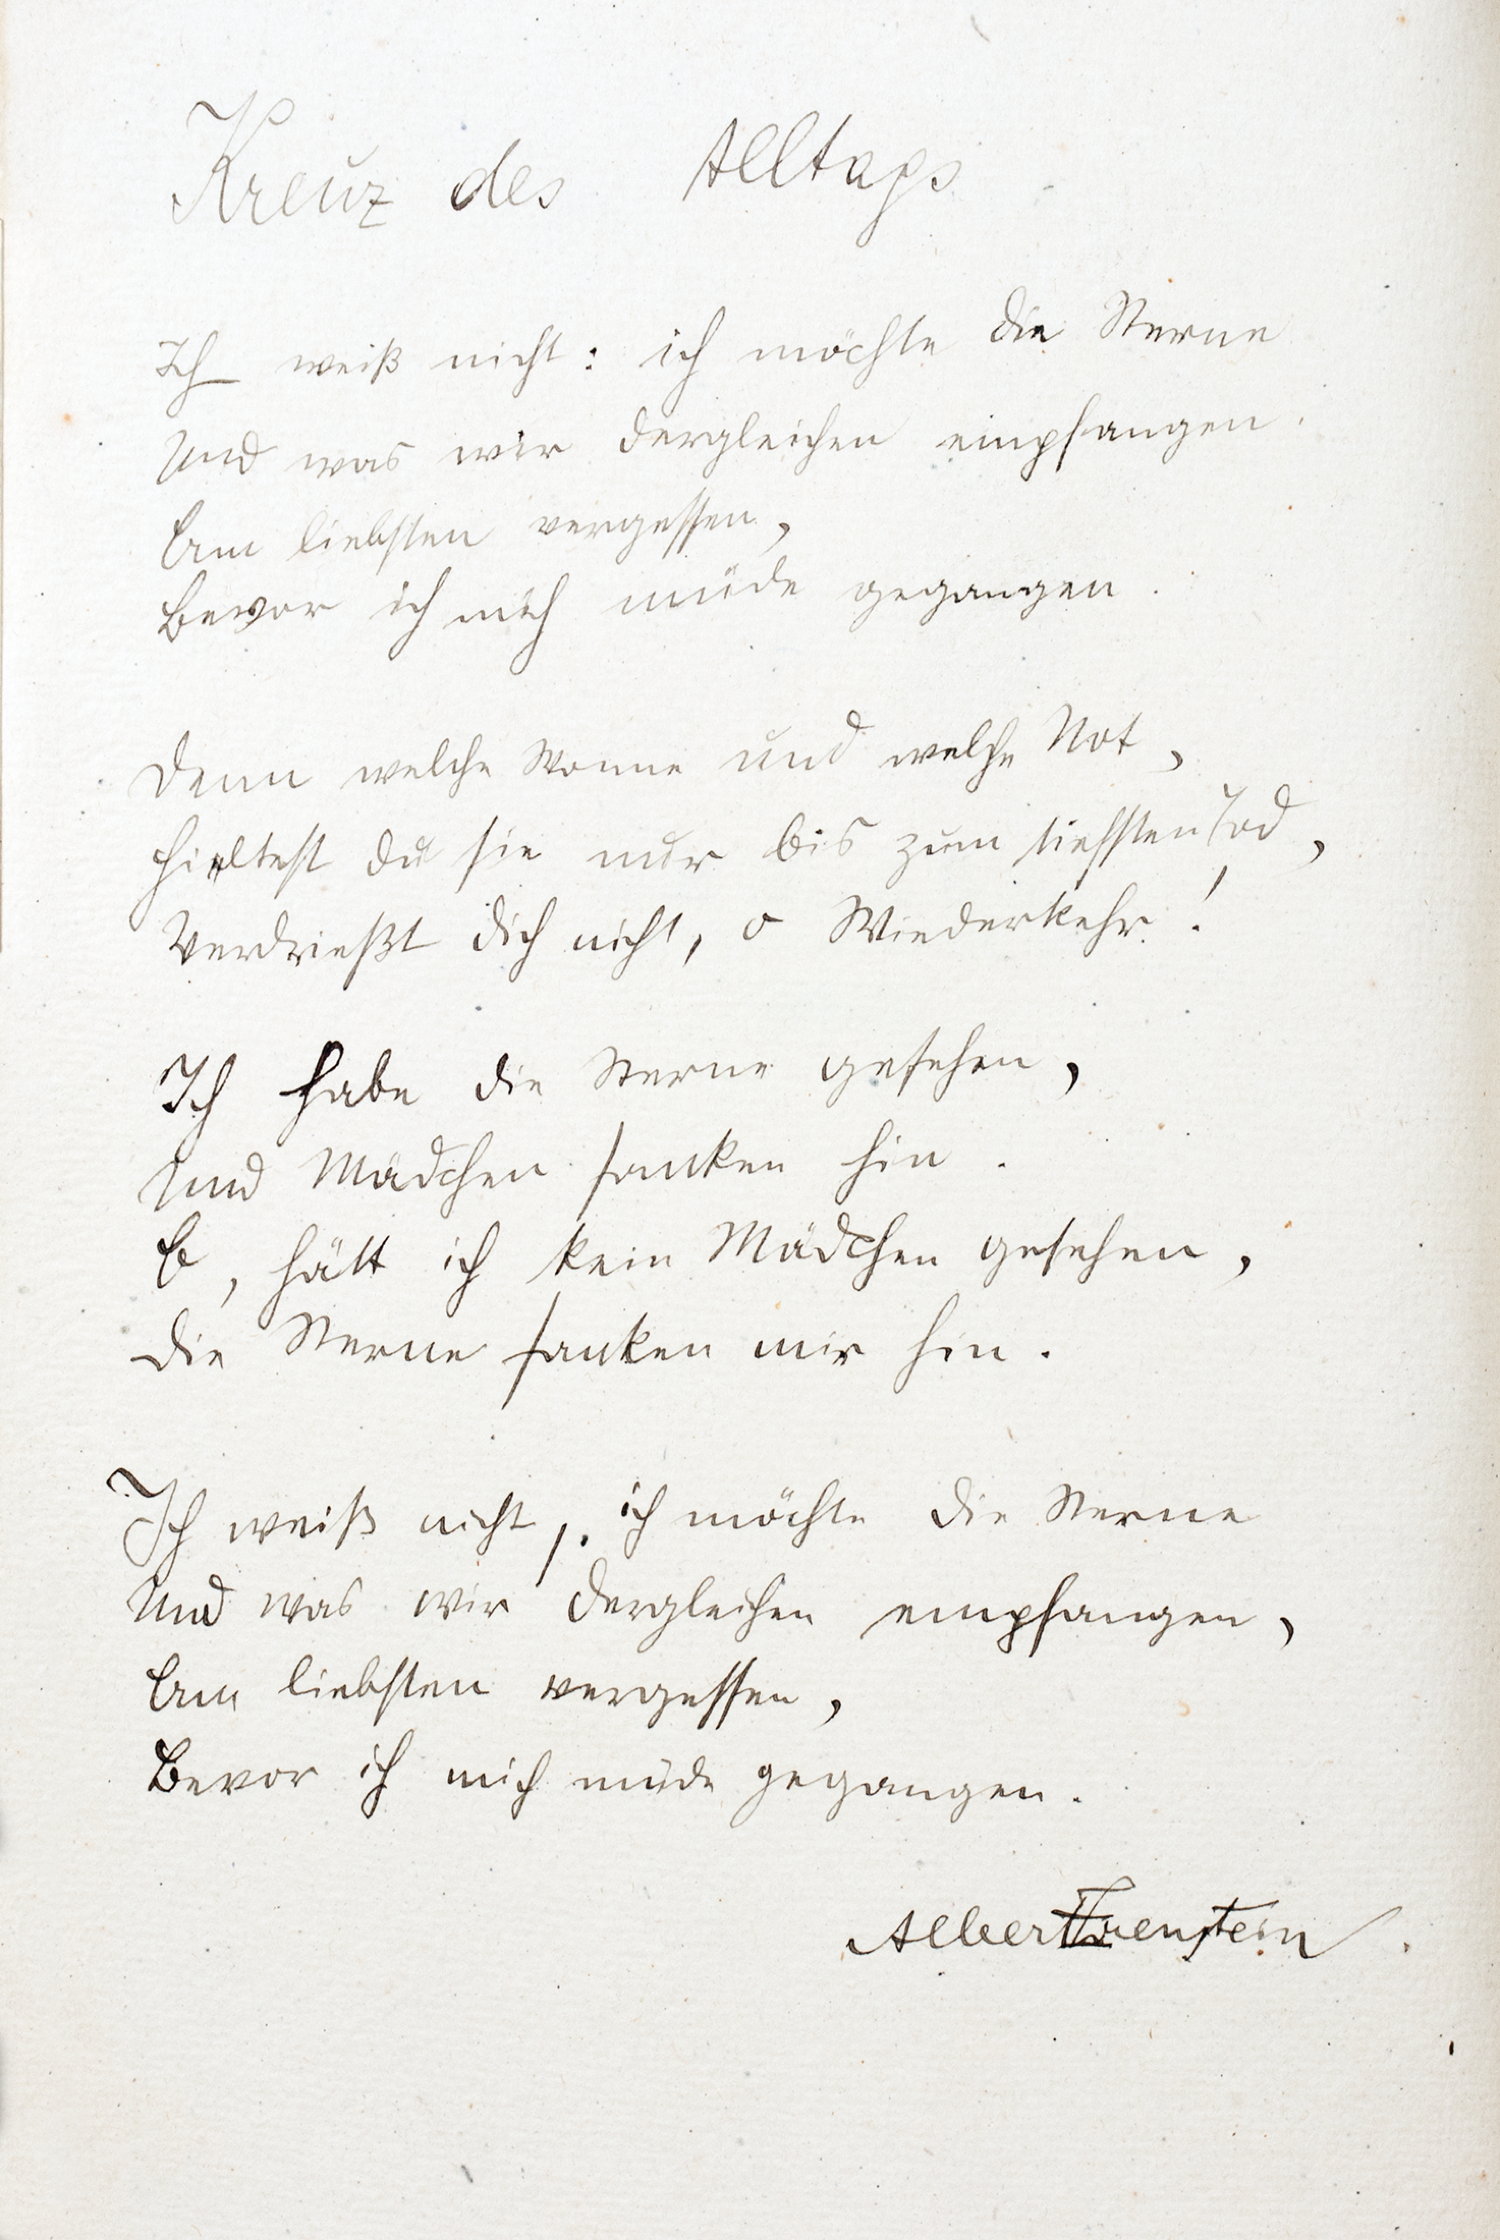 Kreuz des Alltags
Ich weiß nicht: ich möchte die Sterne
Und was wir dergleichen empfangen.
Am liebsten vergessen,
Bevor ich mich müde gegangen.
Denn welche Wonne und welche Not,
Hieltest du sie nur bis zum tiefsten Tod,
Verdrießt dich nicht, o Wiederkehr!
Ich habe die Sterne gesehen,
Und Mädchen sanken hin.
O, hätt ich kein Mädchen gesehen,
Die Sterne sanken mir hin.
Ich weiß nicht, ich möchte die Sterne
Und was wir dergleichen empfangen,
Am liebsten vergessen,
Bevor ich mich müde gegangen.
Albert Ehrenstein